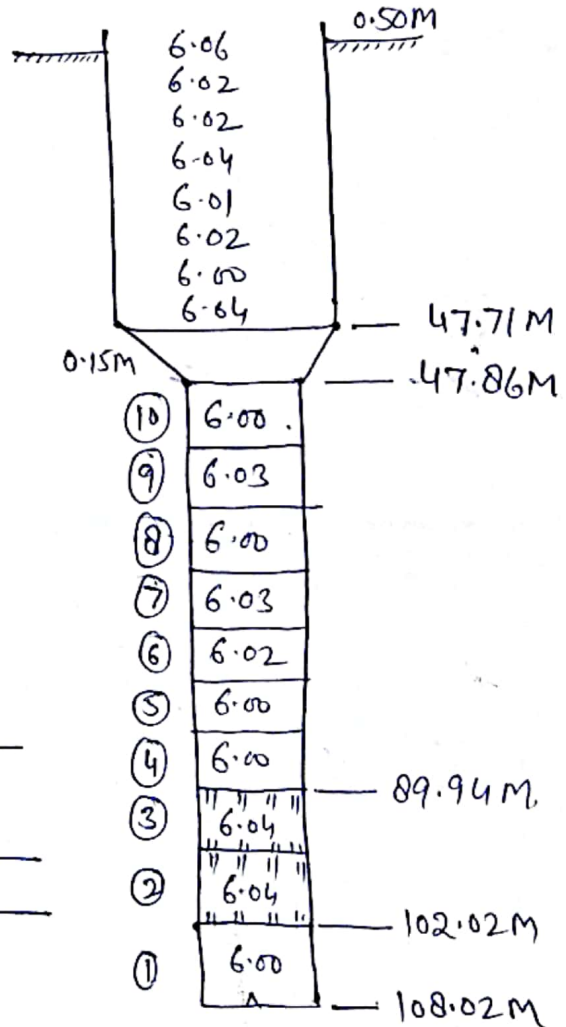 0.50M
6.06
6.02
6.02
6.04
6.01
6.02
6.00
6.04
47.71M
0.15M
47.86M
10 6.00
9 6.03
8 6.00
7 6.03
6 6.02
5 6.00
4 6.00
89.94M
3 6.04
2 6.04
102.02M
1 6.00
108.02M